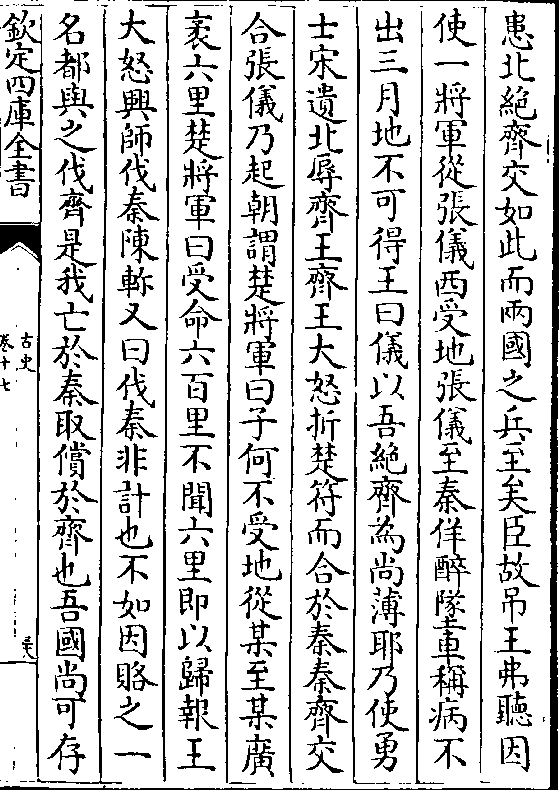 患北絶齊交如此而兩國之兵至矣臣故吊王弗聽因
使一將軍從張儀西受地張儀至秦佯醉墜車稱病不
出三月地不可得王曰儀以吾絶齊為尚薄耶乃使勇
士宋遺北辱齊王齊王大怒折楚符而合於秦秦齊交
合張儀乃起朝謂楚將軍曰子何不受地從某至某廣
袤六里楚將軍曰受命六百里不聞六里即以歸報王
大怒興師伐秦陳軫又曰伐秦非計也不如因賂之一
名都與之伐齊是我亡於秦取償於齊也吾國尚可存
欽定四庫全書
古史
卷十七